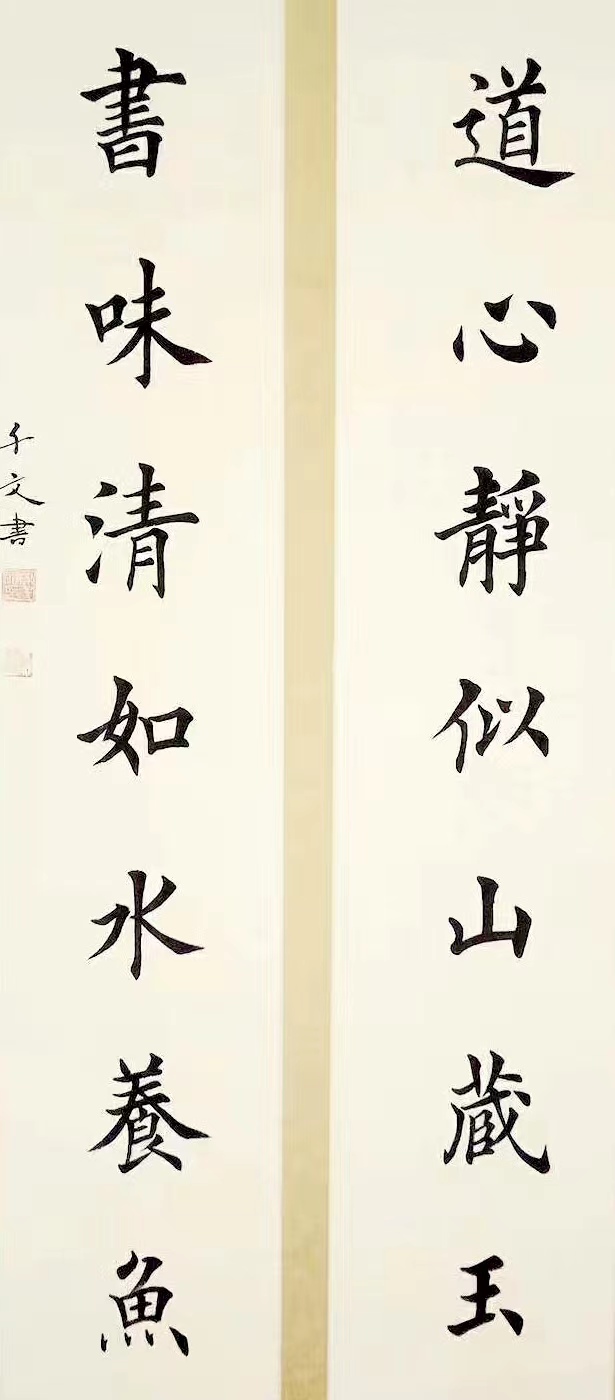 道心靜似山藏玉
書味清如水養魚
千文書